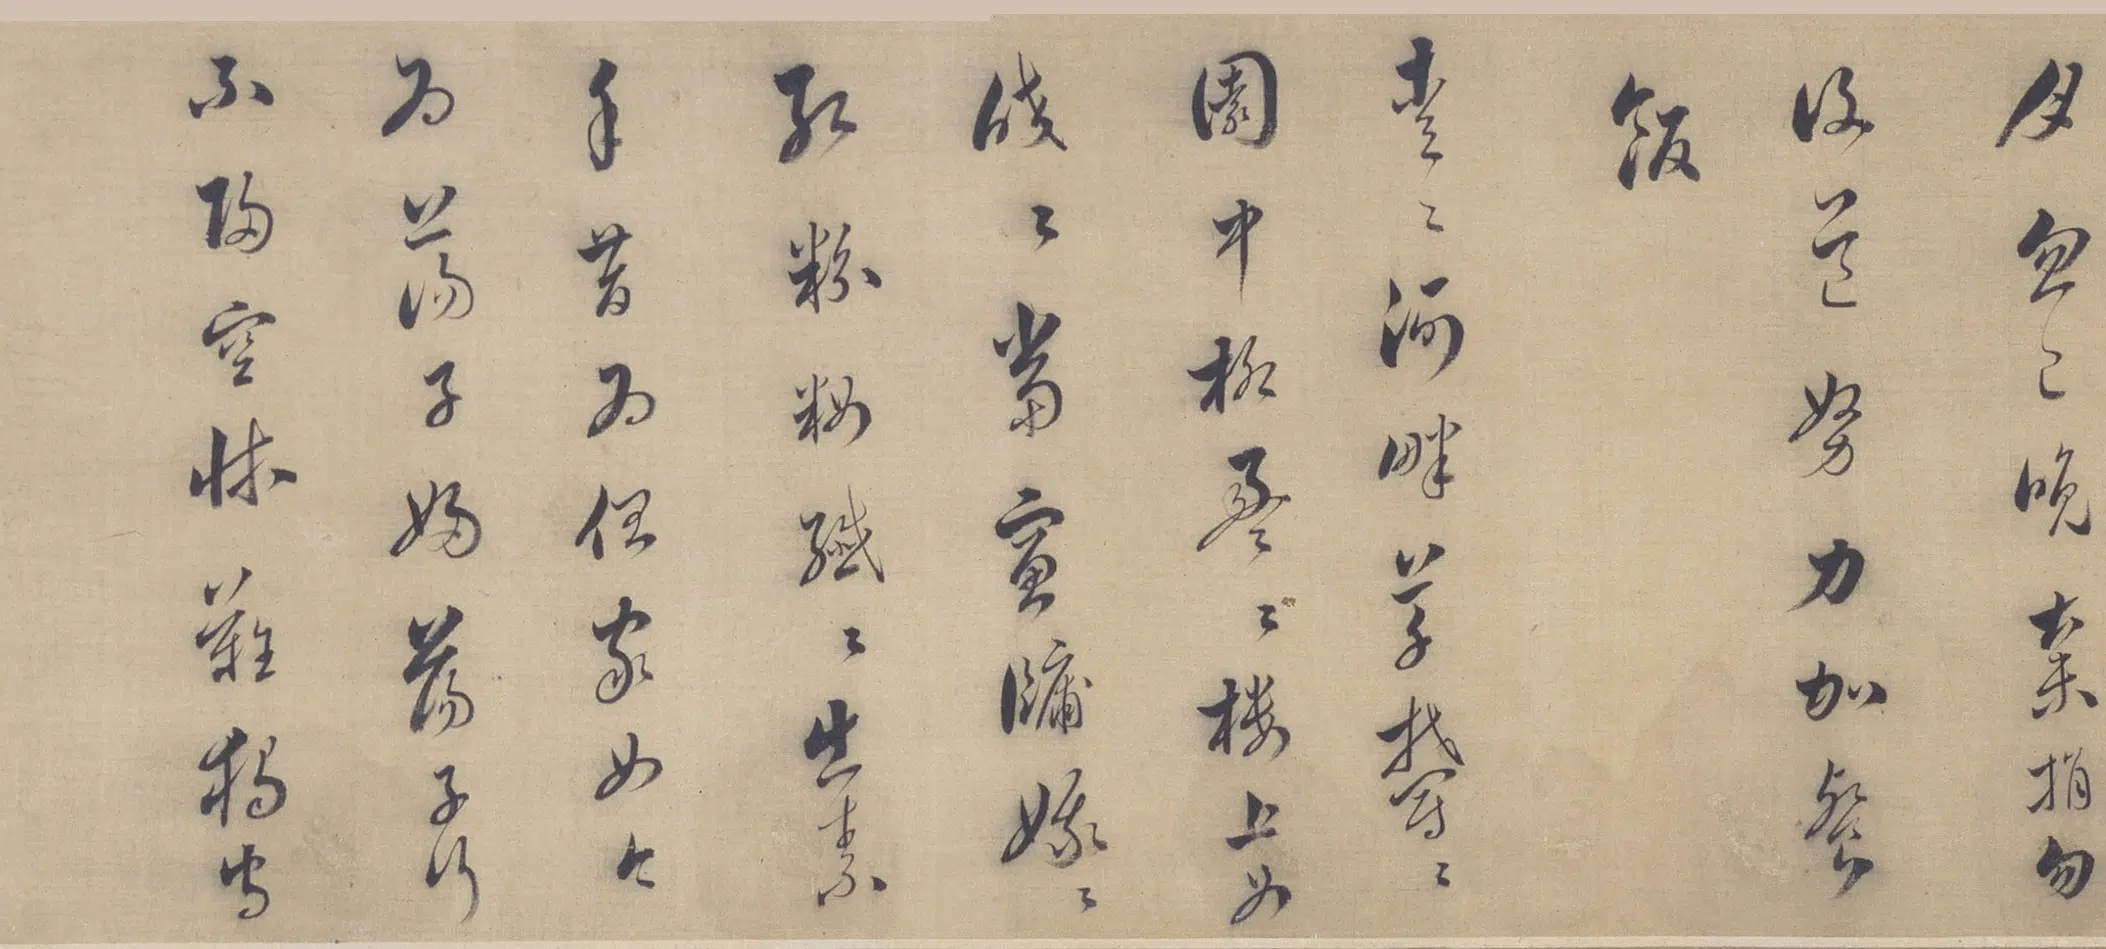 月忽已晚棄捐勿
復道努力加餐
飯
青〻河畔草欝〻
園中柳盈〻樓上女
皎〻當窗牖娥〻
紅粉粧纖〻出素
手昔為倡家女今
為蕩子婦蕩子行
不歸空牀難獨守